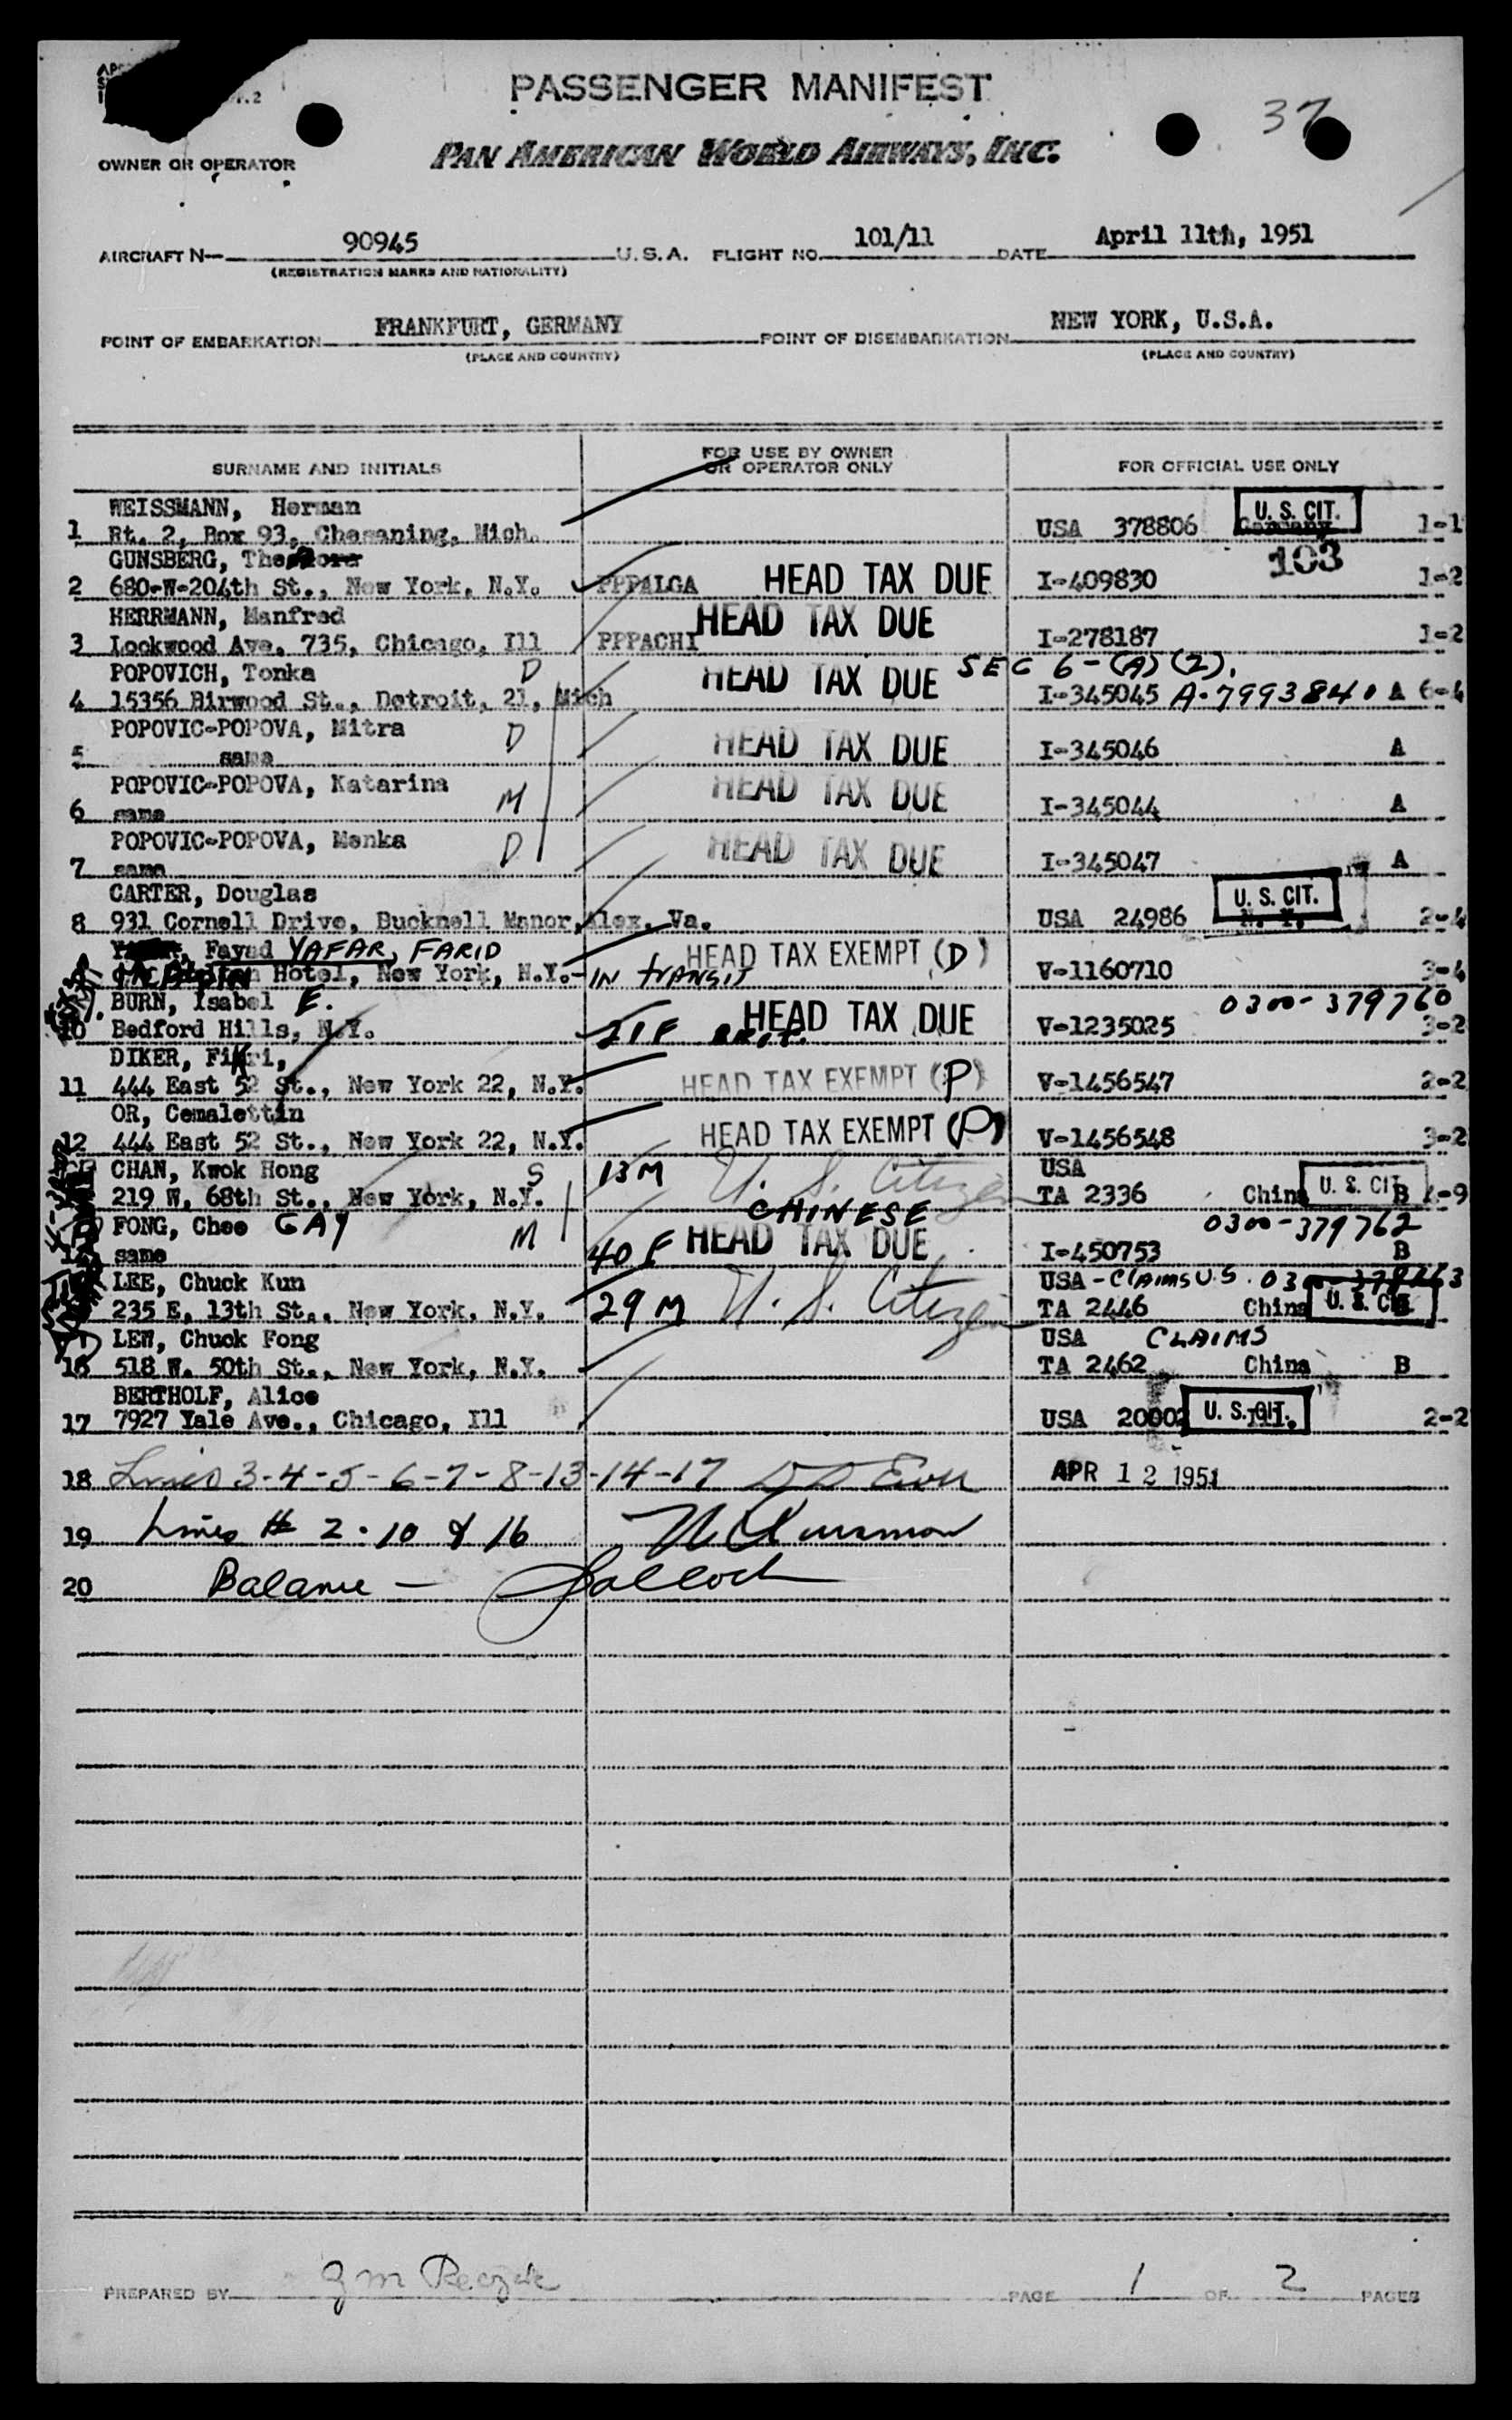 37
PASSENGER MANIFEST
PAN AMERICAN WORLD AIRWAYS, INC.
OWNER OR OPERATOR
AIRCRAFT N— 90945 U.S.A. FLIGHT NO. 101/11 DATE April 11th, 1951
(REGISTRATION MARKS AND NATIONALITY)
POINT OF EMBARKATION FRANKFURT, GERMANY POINT OF DISEMBARKATION NEW YORK, U.S.A.
(PLACE AND COUNTRY) (PLACE AND COUNTRY)
SURNAME AND INITIALS FOR USE BY OWNER OR OPERATOR ONLY FOR OFFICIAL USE ONLY
WEISSMANN, Herman U. S. CIT.
1 Rt. 2, Box 93, Chesaning, Mich. USA 378806 Germany 1-1
GUNSBERG, Theodore 103
2 680-W-204th St., New York, N.Y. PPPALGA HEAD TAX DUE I-409830 1-2
HERRMANN, Manfred HEAD TAX DUE
3 Lockwood Ave. 735, Chicago, Ill PPPACHI I-278187 1-2
POPOVICH, Tonka D HEAD TAX DUE SEC 6-(A)(2).
4 15356 Birwood St., Detroit, 21, Mich I-345045 A-7993840 A 6-4
POPOVIC-POPOVA, Mitra D HEAD TAX DUE
5 same I-345046 A
POPOVIC-POPOVA, Katarina M HEAD TAX DUE
6 same I-345044 A
POPOVIC-POPOVA, Menka D HEAD TAX DUE
7 same I-345047 A
CARTER, Douglas U. S. CIT.
8 931 Cornell Drive, Bucknell Manor, Alex. Va. USA 24986 N. Y. 2-4
Fayad YAFAR, FARID HEAD TAX EXEMPT (D)
Hotel, New York, N.Y.- IN TRANSIT V-1160710 3-4
BURN, Isabel E. HEAD TAX DUE 0300-379760
10 Bedford Hills, N.Y. 21 F BRIT. V-1235025 3-2
DIKER, Fikri, HEAD TAX EXEMPT (P)
11 444 East 52 St., New York 22, N.Y. V-1456547 2-2
OR, Cemalettin HEAD TAX EXEMPT (P)
12 444 East 52 St., New York 22, N.Y. V-1456548 3-2
CHAN, Kwok Hong S 13 M U. S. Citizen USA U. S. CIT
219 W, 68th St., New York, N.Y. TA 2336 China B 1-9
FONG, Chee GAY M CHINESE 0300-379762
same 40 F HEAD TAX DUE I-450753 B
LEE, Chuck Kun USA - CLAIMS U.S.
235 E, 13th St., New York, N.Y. 29 M U. S. Citizen TA 2446 China U. S. CIT
LEW, Chuck Fong USA CLAIMS
16 518 W. 50th St., New York, N.Y. TA 2462 China B
BERTHOLF, Alice U. S. CIT.
17 7927 Yale Ave., Chicago, Ill USA 20002 Ill. 2-2
18 Lines 3-4-5-6-7-8-13-14-17 APR 12 1951
19 Lines # 2-10 & 16
20 Balance —
PREPARED BY PAGE 1 OF 2 PAGES